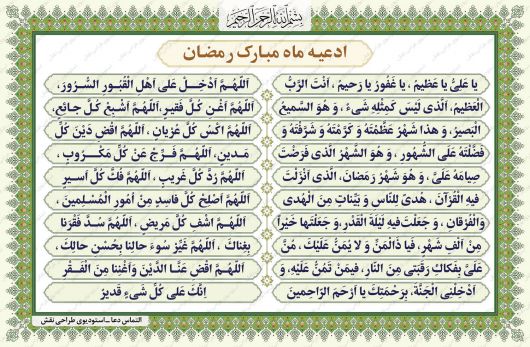 بِسْمِ اللهِ الرَّحْمنِ الرَّحيمِ
ادعیه ماه مبارک رمضان
یا عَلِیُّ یا عَظیمُ ، یا غَفُورُ یا رَحیمُ ، اَنْتَ الرَّبُّ
الْعَظیمُ، اَلَّذی لَیْسَ کَمِثْلِهِ شَیْءٌ ، وَ هُوَ السَّمیعُ
الْبَصیرُ، وَ هذا شَهْرٌ عَظَّمْتَهُ وَ کَرَّمْتَهُ وَ شَرَّفْتَهُ وَ
فَضَّلْتَهُ عَلَی الشُّهُورِ ، وَ هُوَ الشَّهْرُ الَّذی فَرَضْتَ
صِیامَهُ عَلَیَّ ، وَ هُوَ شَهْرُ رَمَضانَ، اَلَّذی اَنْزَلْتَ
فیهِ الْقُرْآنَ ، هُدیً لِلنّاسِ وَ بَیِّناتٍ مِنَ الْهُدی
وَالْفُرْقانِ ، وَ جَعَلْتَ فیهِ لَیْلَةَ الْقَدْرِ، وَ جَعَلْتَها خَیْراً
مِنْ اَلْفِ شَهْرٍ ، فَیا ذَاالْمَنِّ وَ لا یُمَنُّ عَلَیْکَ ، مُنَّ
عَلَیَّ بِفَکاکِ رَقَبَتی مِنَ النّارِ ، فیمَنْ تَمُنُّ عَلَیْهِ، وَ
اَدْخِلْنِی الْجَنَّةَ، بِرَحْمَتِکَ یا اَرْحَمَ الرّاحِمینَ
اَللّهُمَّ اَدْخِلْ عَلی اَهْلِ الْقُبُورِ السُّرُورَ،
اَللّهُمَّ اَغْنِ کُلَّ فَقیرٍ، اَللّهُمَّ اَشْبِعْ کُلَّ جائِعٍ،
اَللّهُمَّ اکْسُ کُلَّ عُرْیانٍ ، اَللّهُمَّ اقْضِ دَیْنَ کُلِّ
مَدینٍ، اَللّهُمَّ فَرِّجْ عَنْ کُلِّ مَکْرُوبٍ ،
اَللّهُمَّ رُدَّ کُلَّ غَریبٍ ، اَللّهُمَّ فُکَّ کُلَّ اَسیرٍ
اَللّهُمَّ اَصْلِحْ کُلَّ فاسِدٍ مِنْ اُمُورِ الْمُسْلِمینَ ،
اَللّهُمَّ اشْفِ کُلَّ مَریضٍ ، اَللّهُمَّ سُدَّ فَقْرَنا
بِغِناکَ ، اَللّهُمَّ غَیِّرْ سُوءَ حالِنا بِحُسْنِ حالِکَ ،
اَللّهُمَّ اقْضِ عَنَّا الدَّیْنَ وَ اَغْنِنا مِنَ الْفَقْرِ
اِنَّکَ عَلی کُلِّ شَیْءٍ قَدیرٌ
التماس دعا ـ استودیوی طراحی نقش